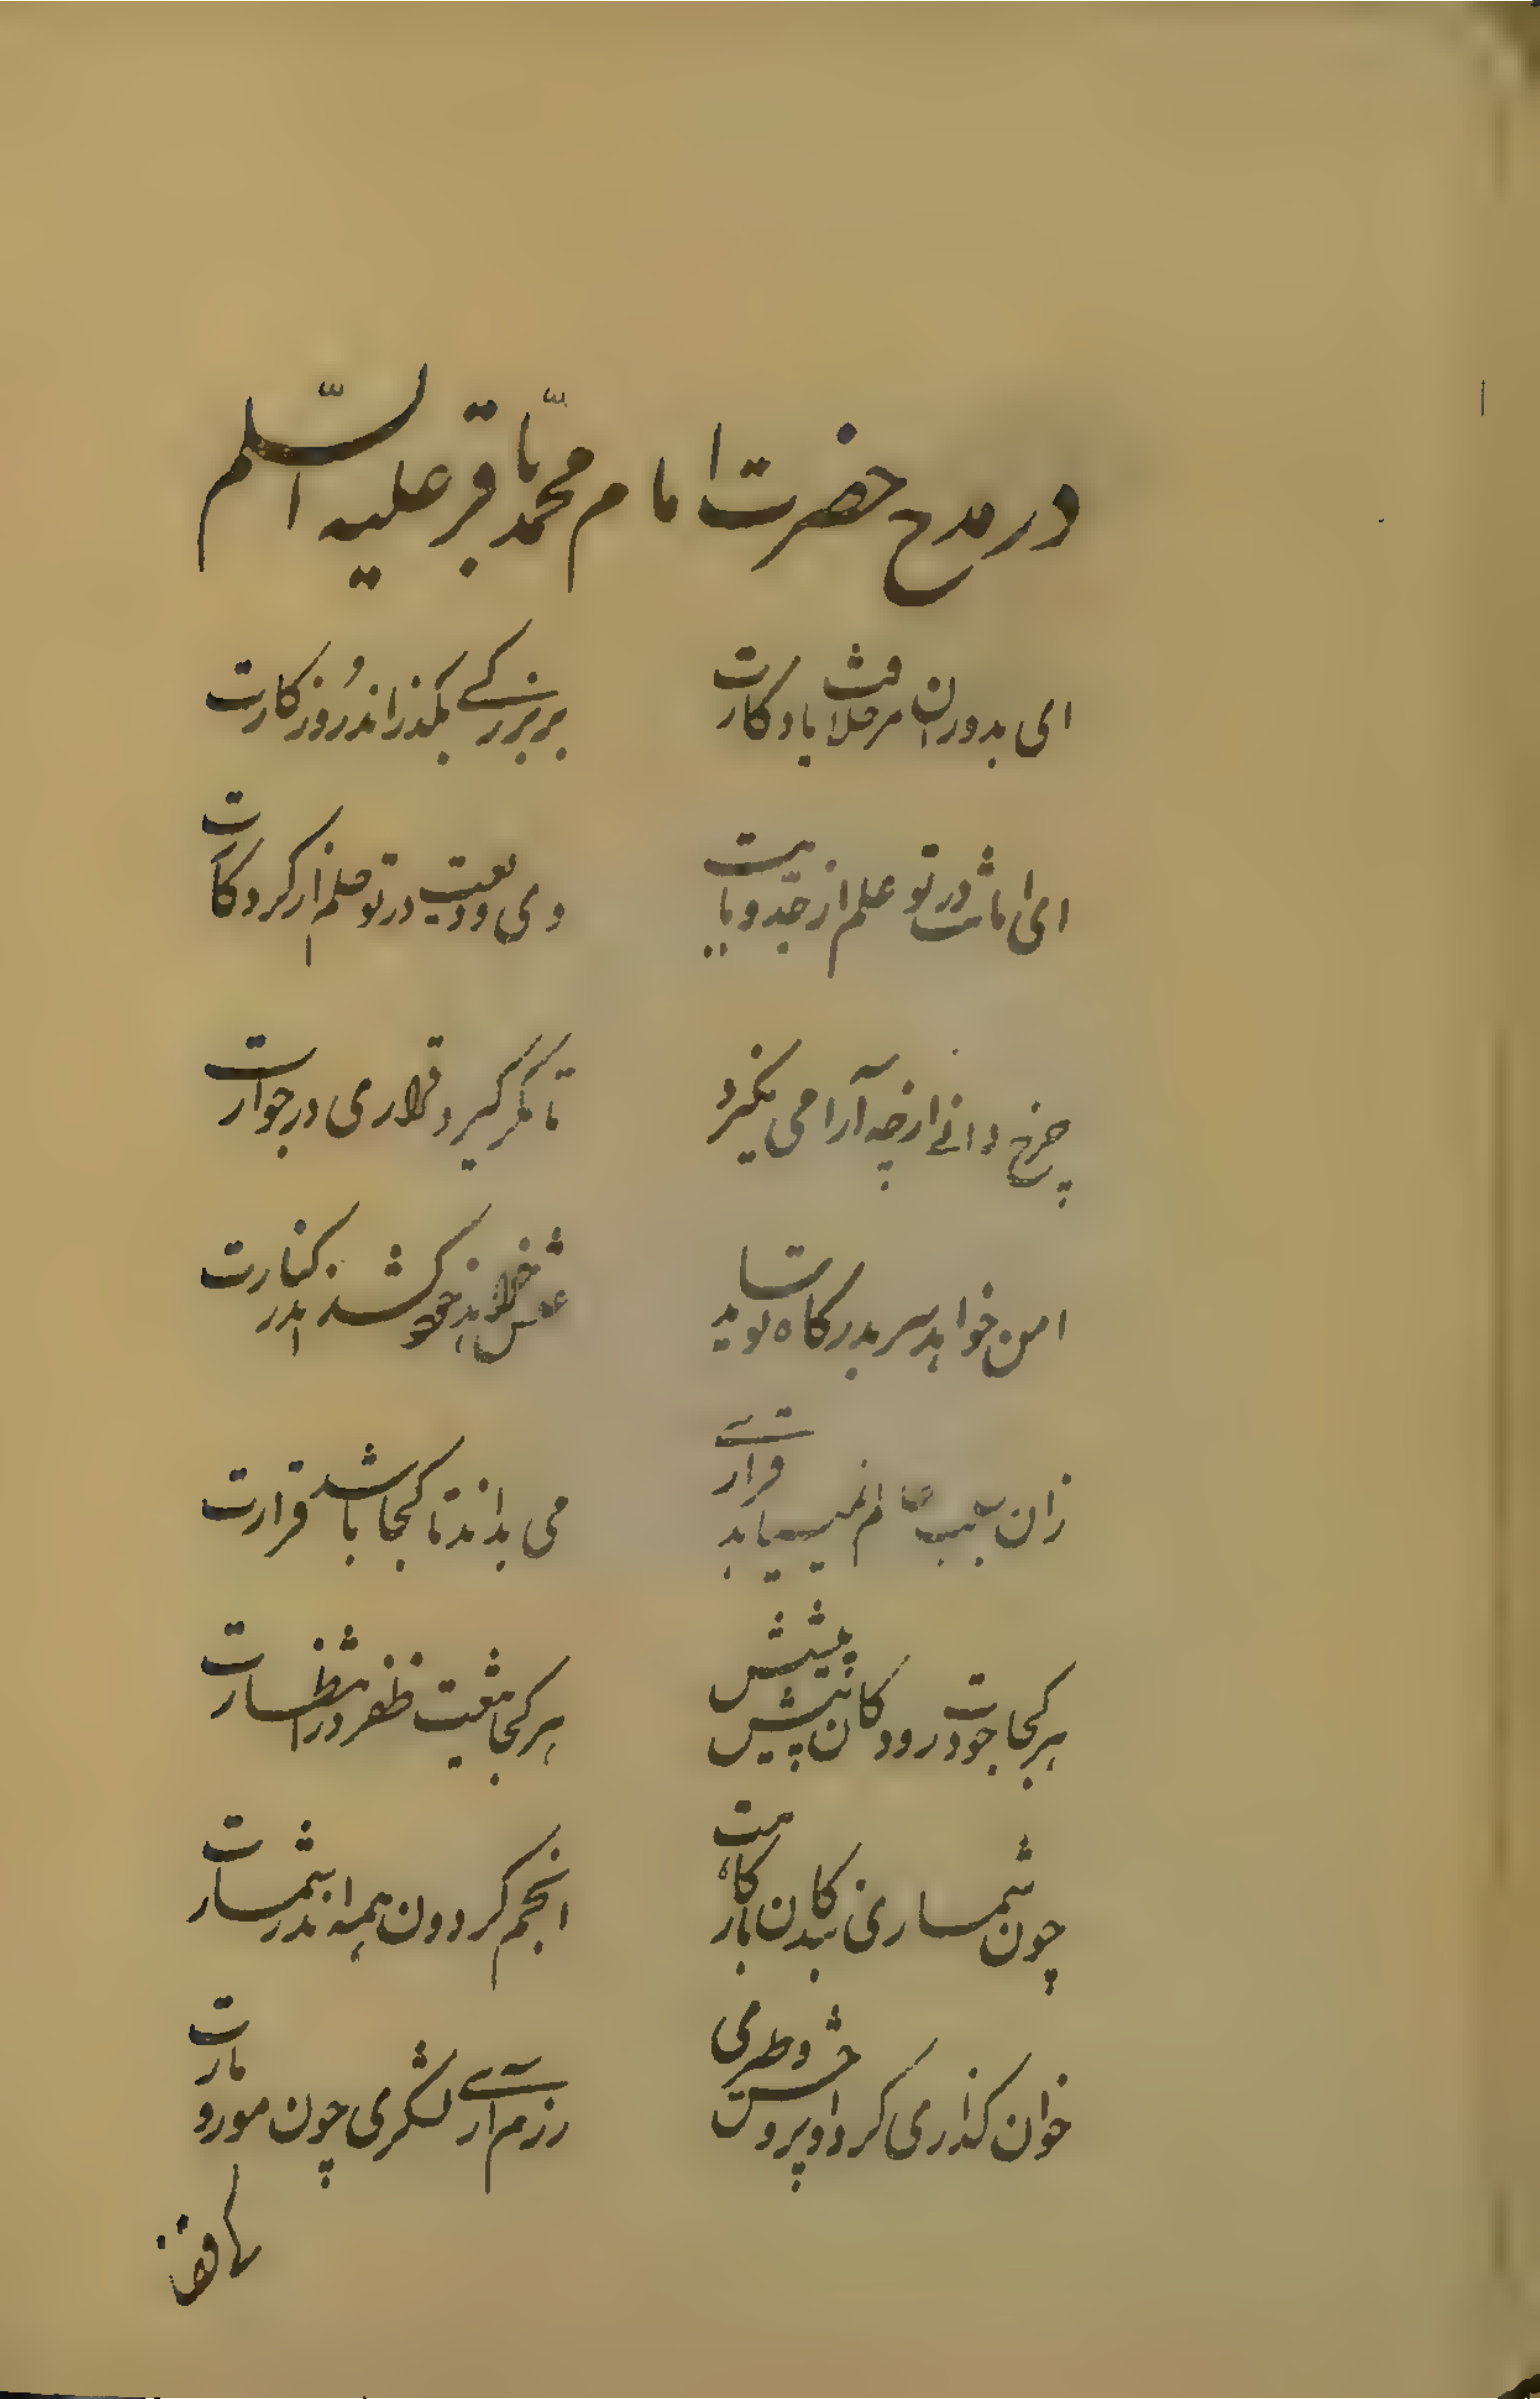 در مدح حضرت امام محمد باقر علیه السّلم
ای بدوران مر خلافت یادکارت
بر بزرکے بکذراند روزکارت
ای امانت در تو علم از جدّ و بابت
وی ودیعت در تو حلم از کردکارت
چرخ دانے از چه آرامی نکیرد
تا مکر کیرد قراری در جوارت
امن خواهد سر بدرکاهت ساید
عیش خواهد خود کشد اندر کنارت
زان سبب عالم نمییابد قرارے
می بداند تا کجا باشد قرارت
هر کجا جودت رود کان پیش پیشش
هر کجا تیغت ظفر در انتظارت
چون شماری بندکان بارکاهت
انجم کردون همه اندر شمارت
خوان کذاری کرد او پر وحش و طیری
رزم آرے لشکری چون مور و مارت